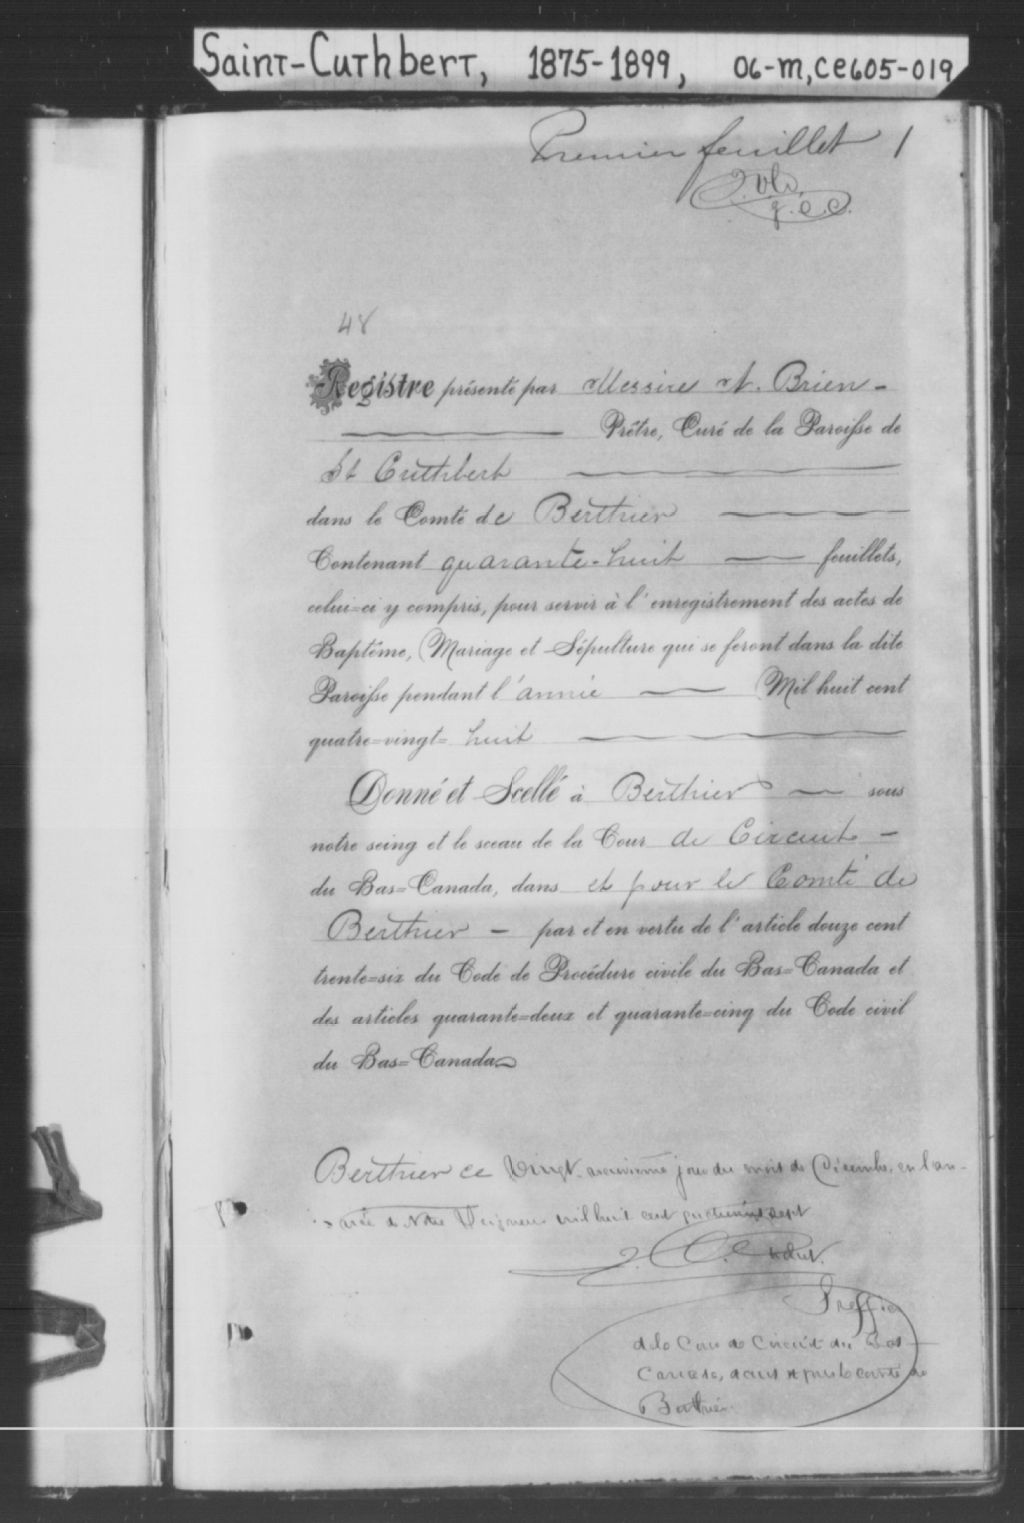 Saint-Cuthbert, 1875-1899, 06-M,CE605-019
Premier feuillet 1
g.c.c.
48
Registre présenté par Messire N. Brien -
Prêtre, Curé de la Paroisse de
St Cuthbert
dans le Comté de Berthier
Contenant quarante-huit feuillets,
celui=ci y compris, pour servir à l'enregistrement des actes de
Baptême, Mariage et Sépulture qui se feront dans la dite
Paroisse pendant l'année Mil huit cent
quatre=vingt= huit
Donné et Scellé à Berthier sous
notre seing et le sceau de la Cour de Circuit -
du Bas=Canada, dans et pour le Comté de
Berthier - par et en vertu de l'article douze cent
trente=six du Code de Procédure civile du Bas=Canada et
des articles quarante=deux et quarante=cinq du Code civil
du Bas=Canada
Berthier ce Vingt neuvième jour du mois de Décembre en l'an-
née de Notre Seigneur mil huit cent quatrevingt sept
Greffier
de la Cour de Circuit du Bas
Canada, dans et pour le comté de
Berthier